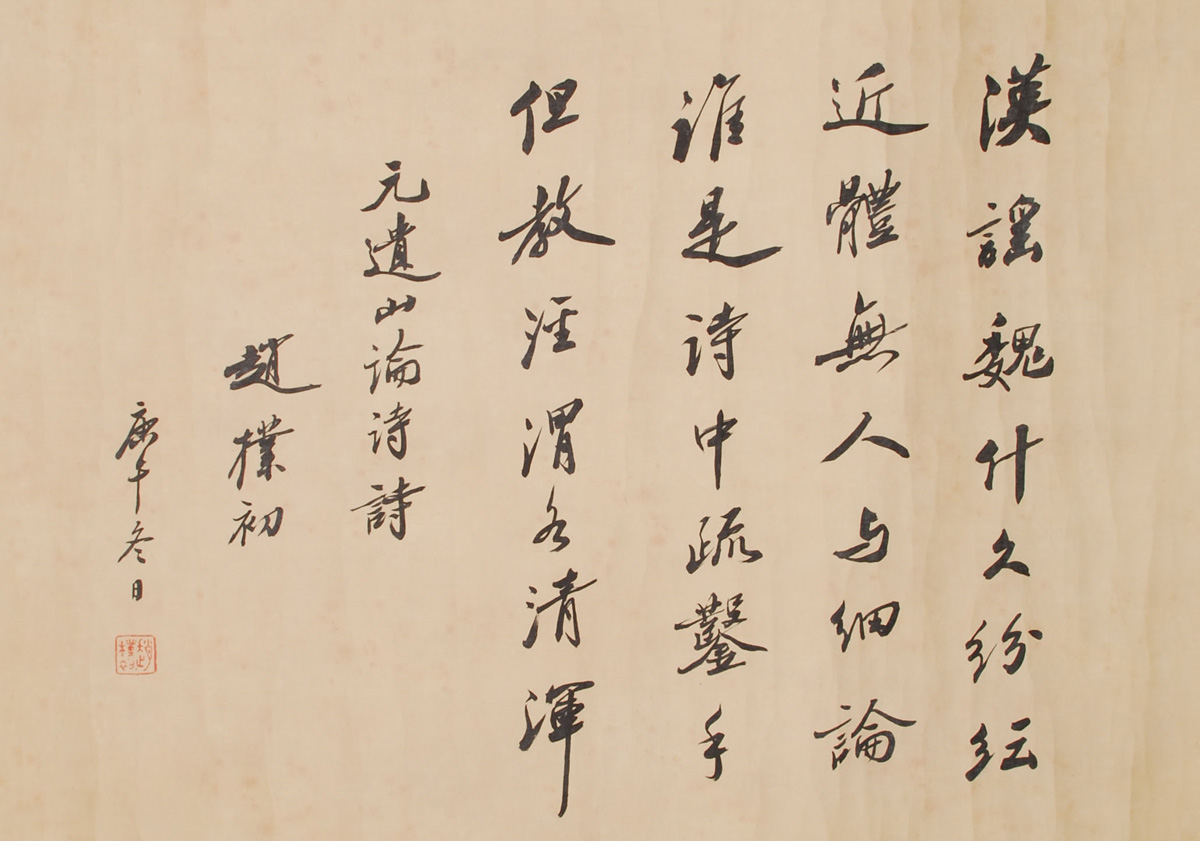 漢謡魏什久紛紜
近體無人与細論
誰是诗中疏鑿手
但教涇渭各清渾
元遺山論诗詩
趙樸初
庚午冬日